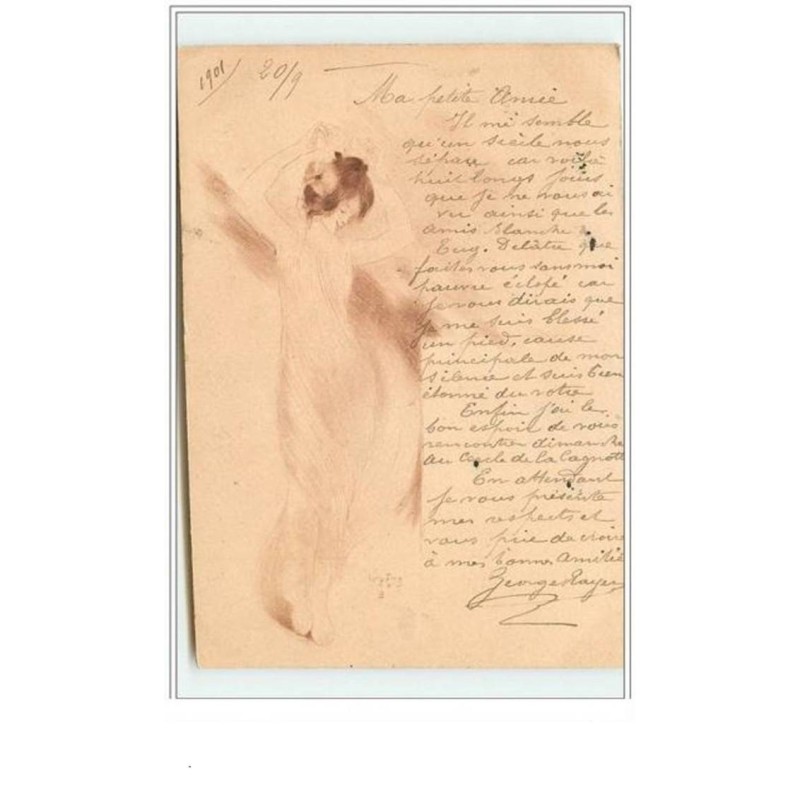 1901 20/9
Ma petite Amie
Il me semble
qu'un siècle nous
sépare car voilà
huit longs jours
que je ne vous ai
vu ainsi que les
amis Blanche &
Eug. Delâtre que
faites vous sans moi
pauvre éclopé car
je vous dirais que
je me suis blessé
un pied, cause
principale de mon
silence et suis bien
étonné du votre
Enfin j'ai le
bon espoir de vous
rencontrer dimanche
au Cercle de la Cagnotte
En attendant
je vous présente
mes respects et
vous prie de croire
à mes bonnes amitiés
Georges